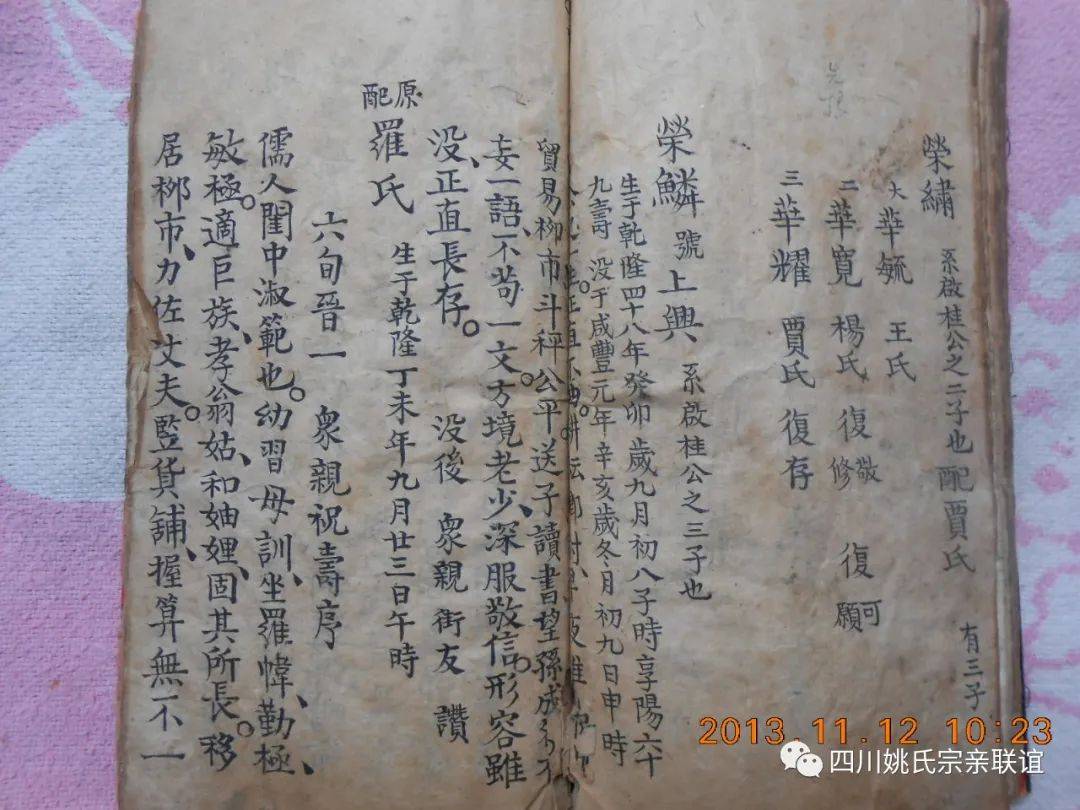 榮繡 系啟桂公之二子也配賈氏 有三子
大華毓 王氏
二華寬 楊氏 復敬 復修 復可 復願
三華耀 賈氏 復存
榮鱗 號上興 系啟桂公之三子也
生于乾隆四十八年癸卯歲九月初八子時享陽六十
九壽 没于咸豐元年辛亥歲冬月初九日申時
正直
貿易柳市斗秤公平送子讀書望孫成
妄一語、不苟一文。方境老少、深服敬信。形容雖
没、正直長存。 没後 衆親街友 讚
原配羅氏 生于乾隆丁未年九月廿三日午時
六旬晉一 衆親祝壽序
儒人閨中淑範也。幼習母訓、坐羅幃、勤極、
敏極。適巨族、孝翁姑、和妯娌、固其所長。移
居柳市、力佐丈夫。監貨舖、握算無不一
2013.11.12 10:23
四川姚氏宗亲联谊